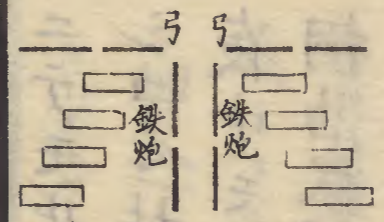 弓
弓
鉄炮
鉄炮